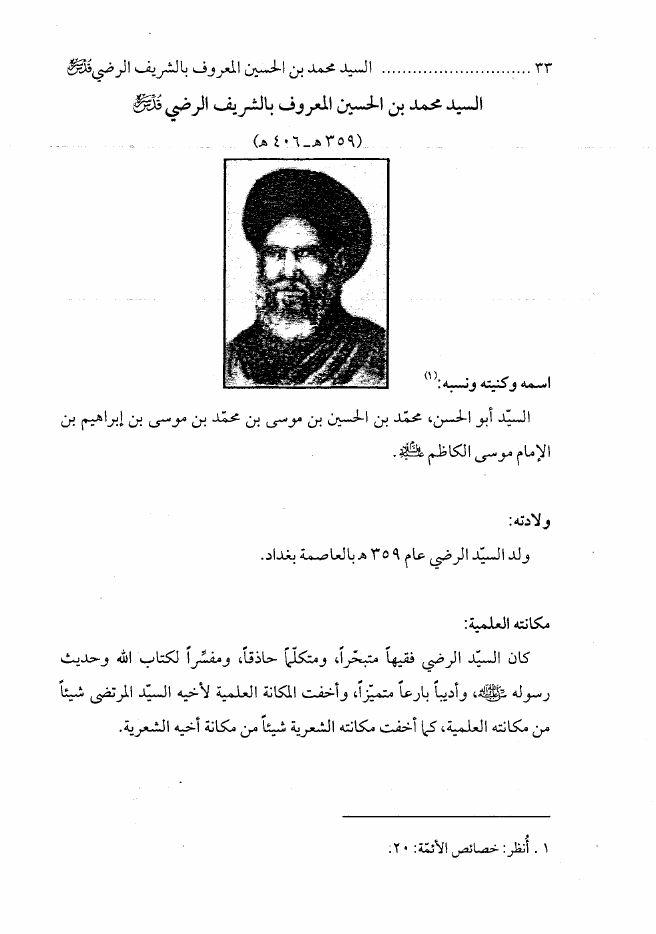 ٣٣ ............................ السيد محمد بن الحسين المعروف بالشريف الرضي قدّس سرّه
السيد محمد بن الحسين المعروف بالشريف الرضي قدّس سرّه
(٣٥٩هـ_٤٠٦ هـ)
اسمه وكنيته ونسبه:(١)
السيّد أبو الحسن، محمّد بن الحسين بن موسى بن محمّد بن موسى بن إبراهيم بن
الإمام موسى الكاظم عليه السلام.
ولادته:
ولد السيّد الرضي عام ٣٥٩ هـ بالعاصمة بغداد.
مكانته العلمية:
كان السيّد الرضي فقيهاً متبحّراً، ومتكلّماً حاذقاً، ومفسِّراً لكتاب الله وحديث
رسوله ﷺ، وأديباً بارعاً متميّزاً، وأخفت المكانة العلمية لأخيه السيّد المرتضى شيئاً
من مكانته العلمية، كما أخفت مكانته الشعرية شيئاً من مكانة أخيه الشعرية.
١ . أُنظر: خصائص الأئمّة: ٢٠.